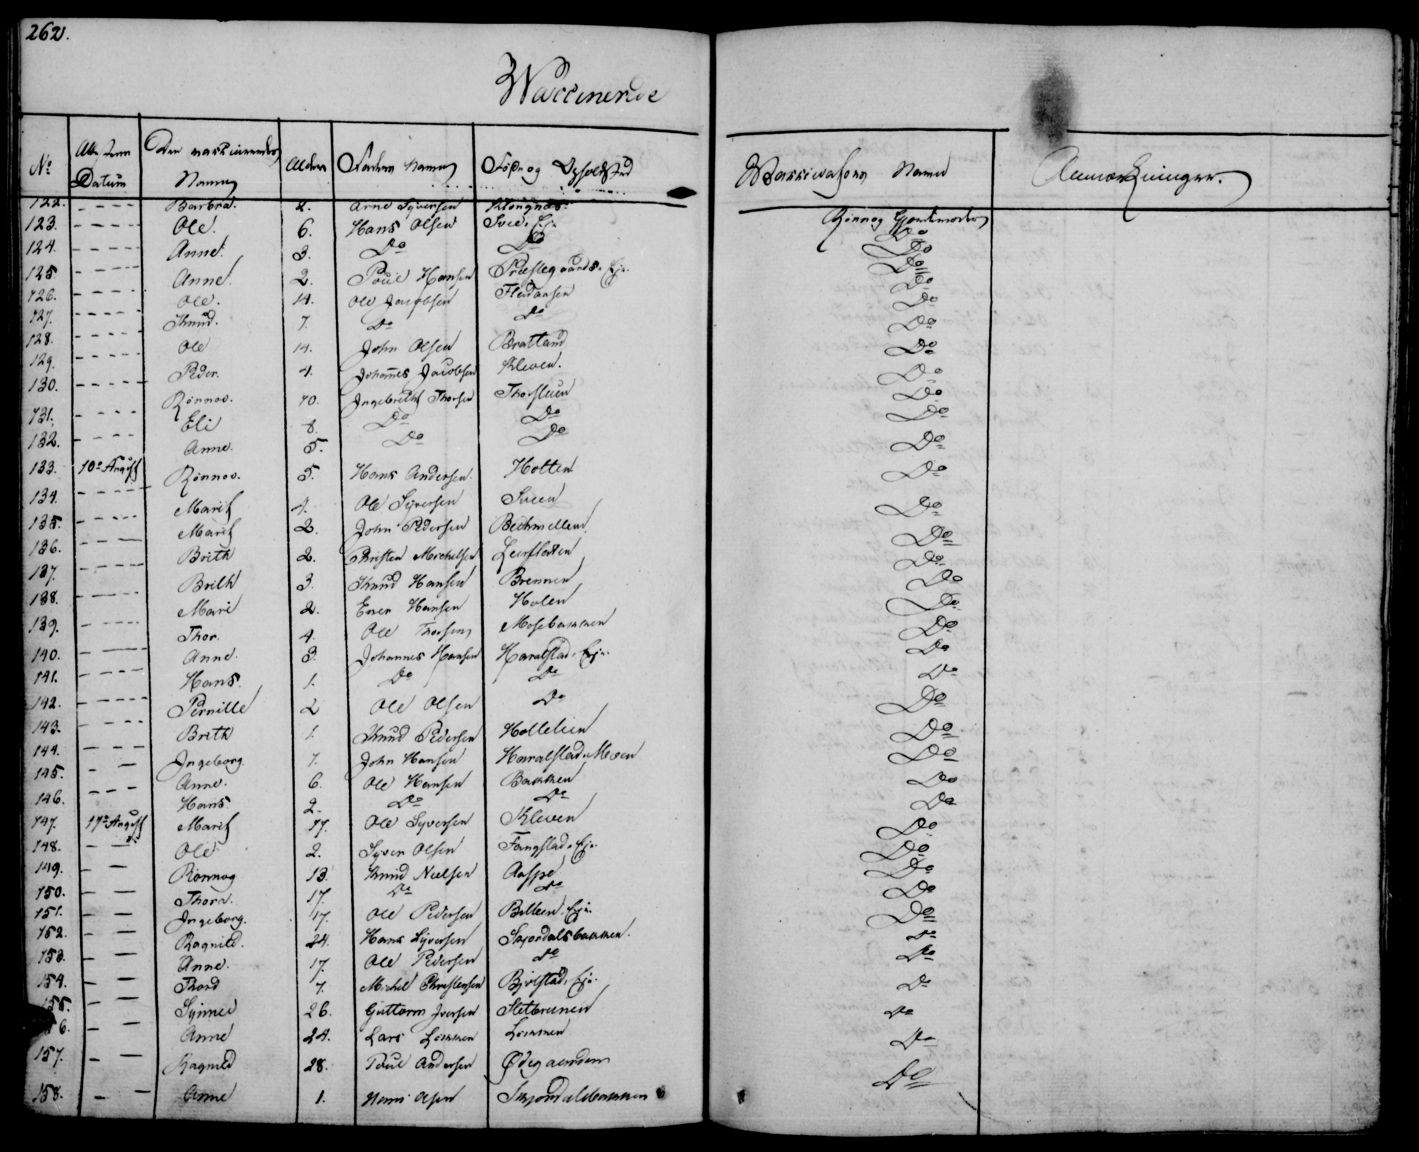 262.
Waccinerede
No Attestens Datum Den vaccineredes Navn Alder Faders Navn Føde og Opholdsted Waccinasions Navne Anmærkninger.
122. Barbra. 2. Arne Syversen Klongnæs Rønnog Gjordemoder
123. Ole. 6. Hans Olsen Svee. Eje. Do
124. Anne. 3. Do Do Do
125 Anne. 2. Poul Hansen Præstegaards. Eje. Do
126. Ole. 14. Ole Jacobsen Do
127. Knud. 7. Do Do Do
128. Ole 14. John Olsen Bratland Do
129. Peder. 4. Johannes Jacobsen Kleven. Do
130. Rønnov. 10. Ingebregt Thorsen Thorsteen Do
131. Eli 8. Do Do Do
132. Anne. 5. Do Do Do
133. 10de August Rønnov. 5. Hans Andersen Hotten Do
134. Marit 4. Ole Syversen Sveen Do
135. Marit 2. John Pedersen Bechmellem Do
136. Brith 2. Christen Michelsen Leerflaten Do
137. Brith 3. Knud Hansen Brennen Do
138. Marie 2. Ener Hansen Holen Do
139. Thor. 4. Ole Thorsen Mosebakken Do
140. Anne. 3. Johannes Hansen Haralstad. Eje. Do
141. Hans. 1. Do Do Do
142. Pernille 2 Ole Olsen Do Do
143. Brith 1. Knud Pedersen Holleteen Do
144. Ingeborg. 7. John Hansen Haralstad Moen Do
145. Anne. 6. Ole Hansen Bakken Do
146. Hans. 2. Do Do Do
147. 17de August Marit 17. Ole Syversen Kleven Do
148. Ole 2. Syver Olsen Fangstad. Eje. Do
149. Rønnog 13. Knud Nielsen Aaspe Do
150. Thora. 17. Do Do Do
151. Ingeborg. 17. Ole Pedersen Bilben. Eje. Do
152. Ragnild. 24. Hans Syversen Skjordalsbakken. Do
153. Anne. 17. Ole Pedersen Do Do
154. Thord 7. Michel Christensen Bjølstad. Eje. Do
155. Synnev 26. Guttorm Iversen Sletbrunen Do
156. Anne 24. Lars Lømmen Lømmen Do
157. Ragnild 28. Poul Andersen Ødegaarden Do
158. Anne 1. Hans Olsen Skjordalsbakken